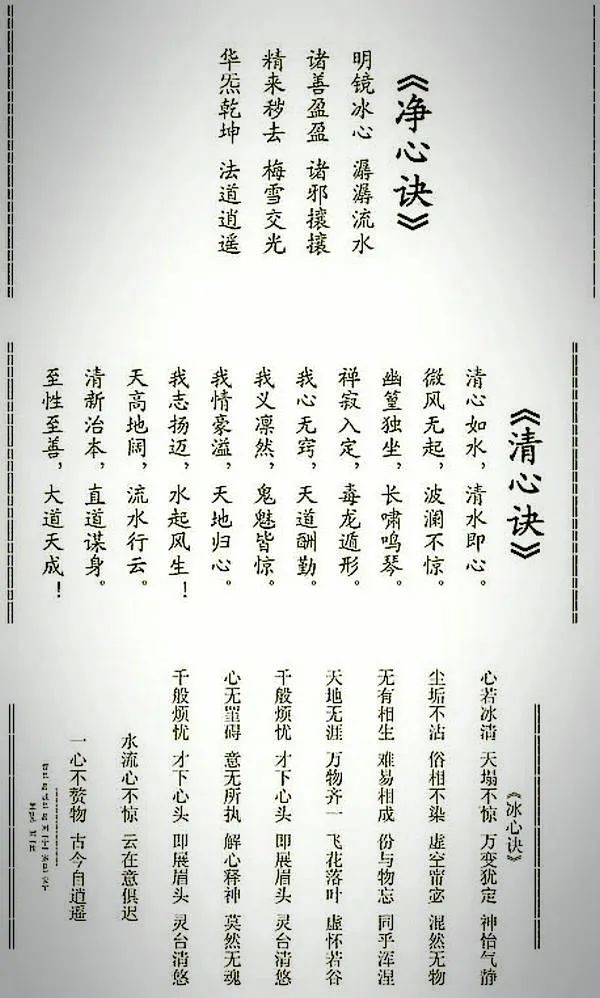 《净心诀》
明镜冰心 潺潺流水
诸善盈盈 诸邪攘攘
精来秽去 梅雪交光
华炁乾坤 法道逍遥
《清心诀》
清心如水，清水即心。
微风无起，波澜不惊。
幽篁独坐，长啸鸣琴。
禅寂入定，毒龙遁形。
我心无窍，天道酬勤。
我义凛然，鬼魅皆惊。
我情豪溢，天地归心。
我志扬迈，水起风生！
天高地阔，流水行云。
清新治本，直道谋身。
至性至善，大道天成！
《冰心诀》
心若冰清 天塌不惊 万变犹定 神怡气静
尘垢不沾 俗相不染 虚空甯宓 混然无物
无有相生 难易相成 份与物忘 同乎浑涅
天地无涯 万物齐一 飞花落叶 虚怀若谷
千般烦忧 才下心头 即展眉头 灵台清悠
心无罣碍 意无所执 解心释神 莫然无魂
千般烦忧 才下心头 即展眉头 灵台清悠
水流心不惊 云在意俱迟
一心不赘物 古今自逍遥